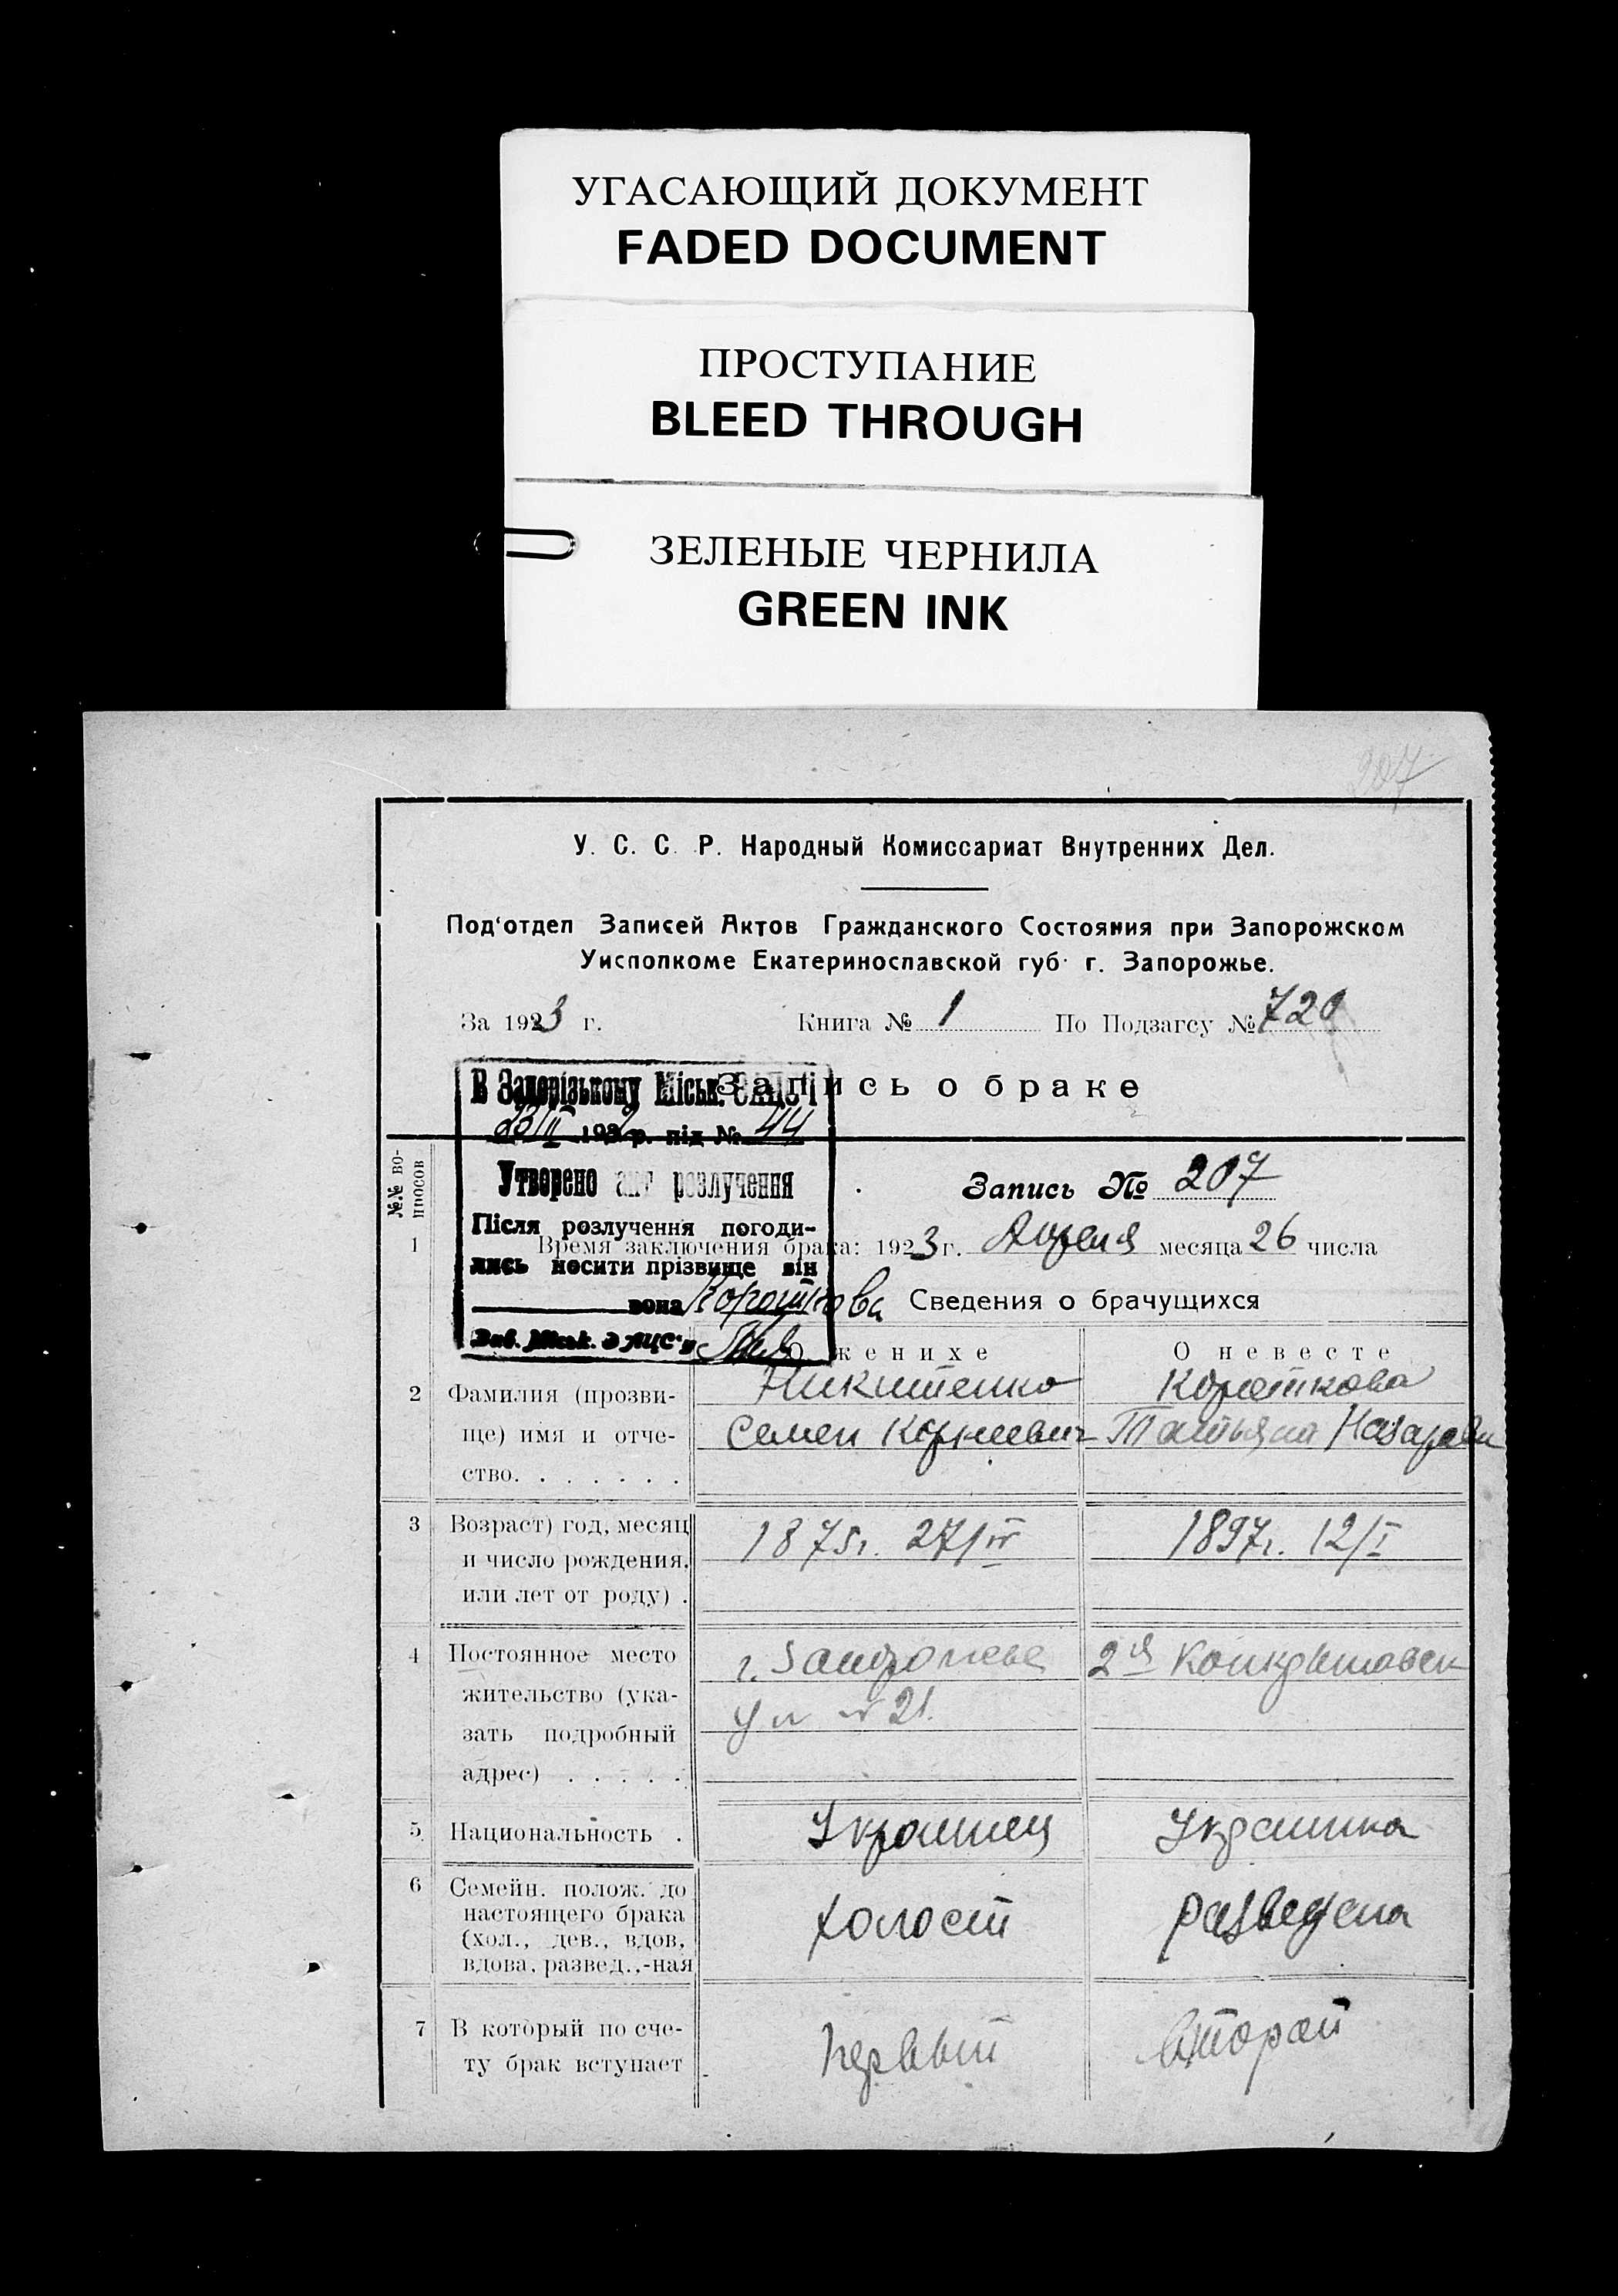 УГАСАЮЩИЙ ДОКУМЕНТ
FADED DOCUMENT
ПРОСТУПАНИЕ
BLEED THROUGH
ЗЕЛЕНЫЕ ЧЕРНИЛА
GREEN INK
207
У. С. С. Р. Народный Комиссариат Внутренних Дел.
Под‘отдел Записей Актов Гражданского Состояния при Запорожском
Уисполкоме Екатеринославской губ. г. Запорожье.
За 1923 г. Книга № 1 По Подзагсу № 720
Запись о браке
В Запорізькому Міськ.
193 р. під № 44
Утворено акт розлучення
Після розлучення погоди-
лись носити прізвище він
вона Короткова
Зав. Міськ. ЗАЦС'у
№№ во-
просов
Запись № 207
1 Время заключения брака: 1923 г. Апреля месяца 26 числа
Сведения о брачущихся
О женихе О невесте
2 Фамилия (прозви- Никитенко Короткова
ще) имя и отче- Семен Корнеевич Татьяна Назаровн
ство. . . . . . .
3 Возраст) год, месяц 1875г. 27/IV 1897г. 12/I
и число рождения,
или лет от роду) .
4 Постоянное место г. Запорожье 2я
жительство (ука- № 21.
зать подробный
адрес) . . . . .
5 Национальность . Украинец Украинка
6 Семейн. полож. до
настоящего брака холост разведена
(хол., дев., вдов,
вдова, развед.,-ная
7 В который по сче- первый второй
ту брак вступает